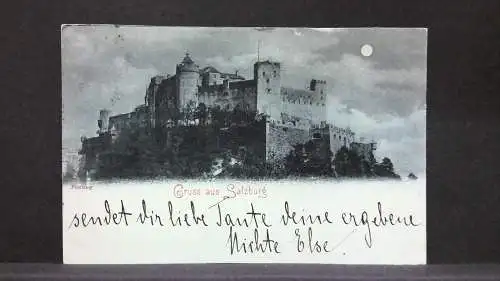 Festung
Gruss aus Salzburg
sendet dir liebe Tante deine ergebene
Nichte Else